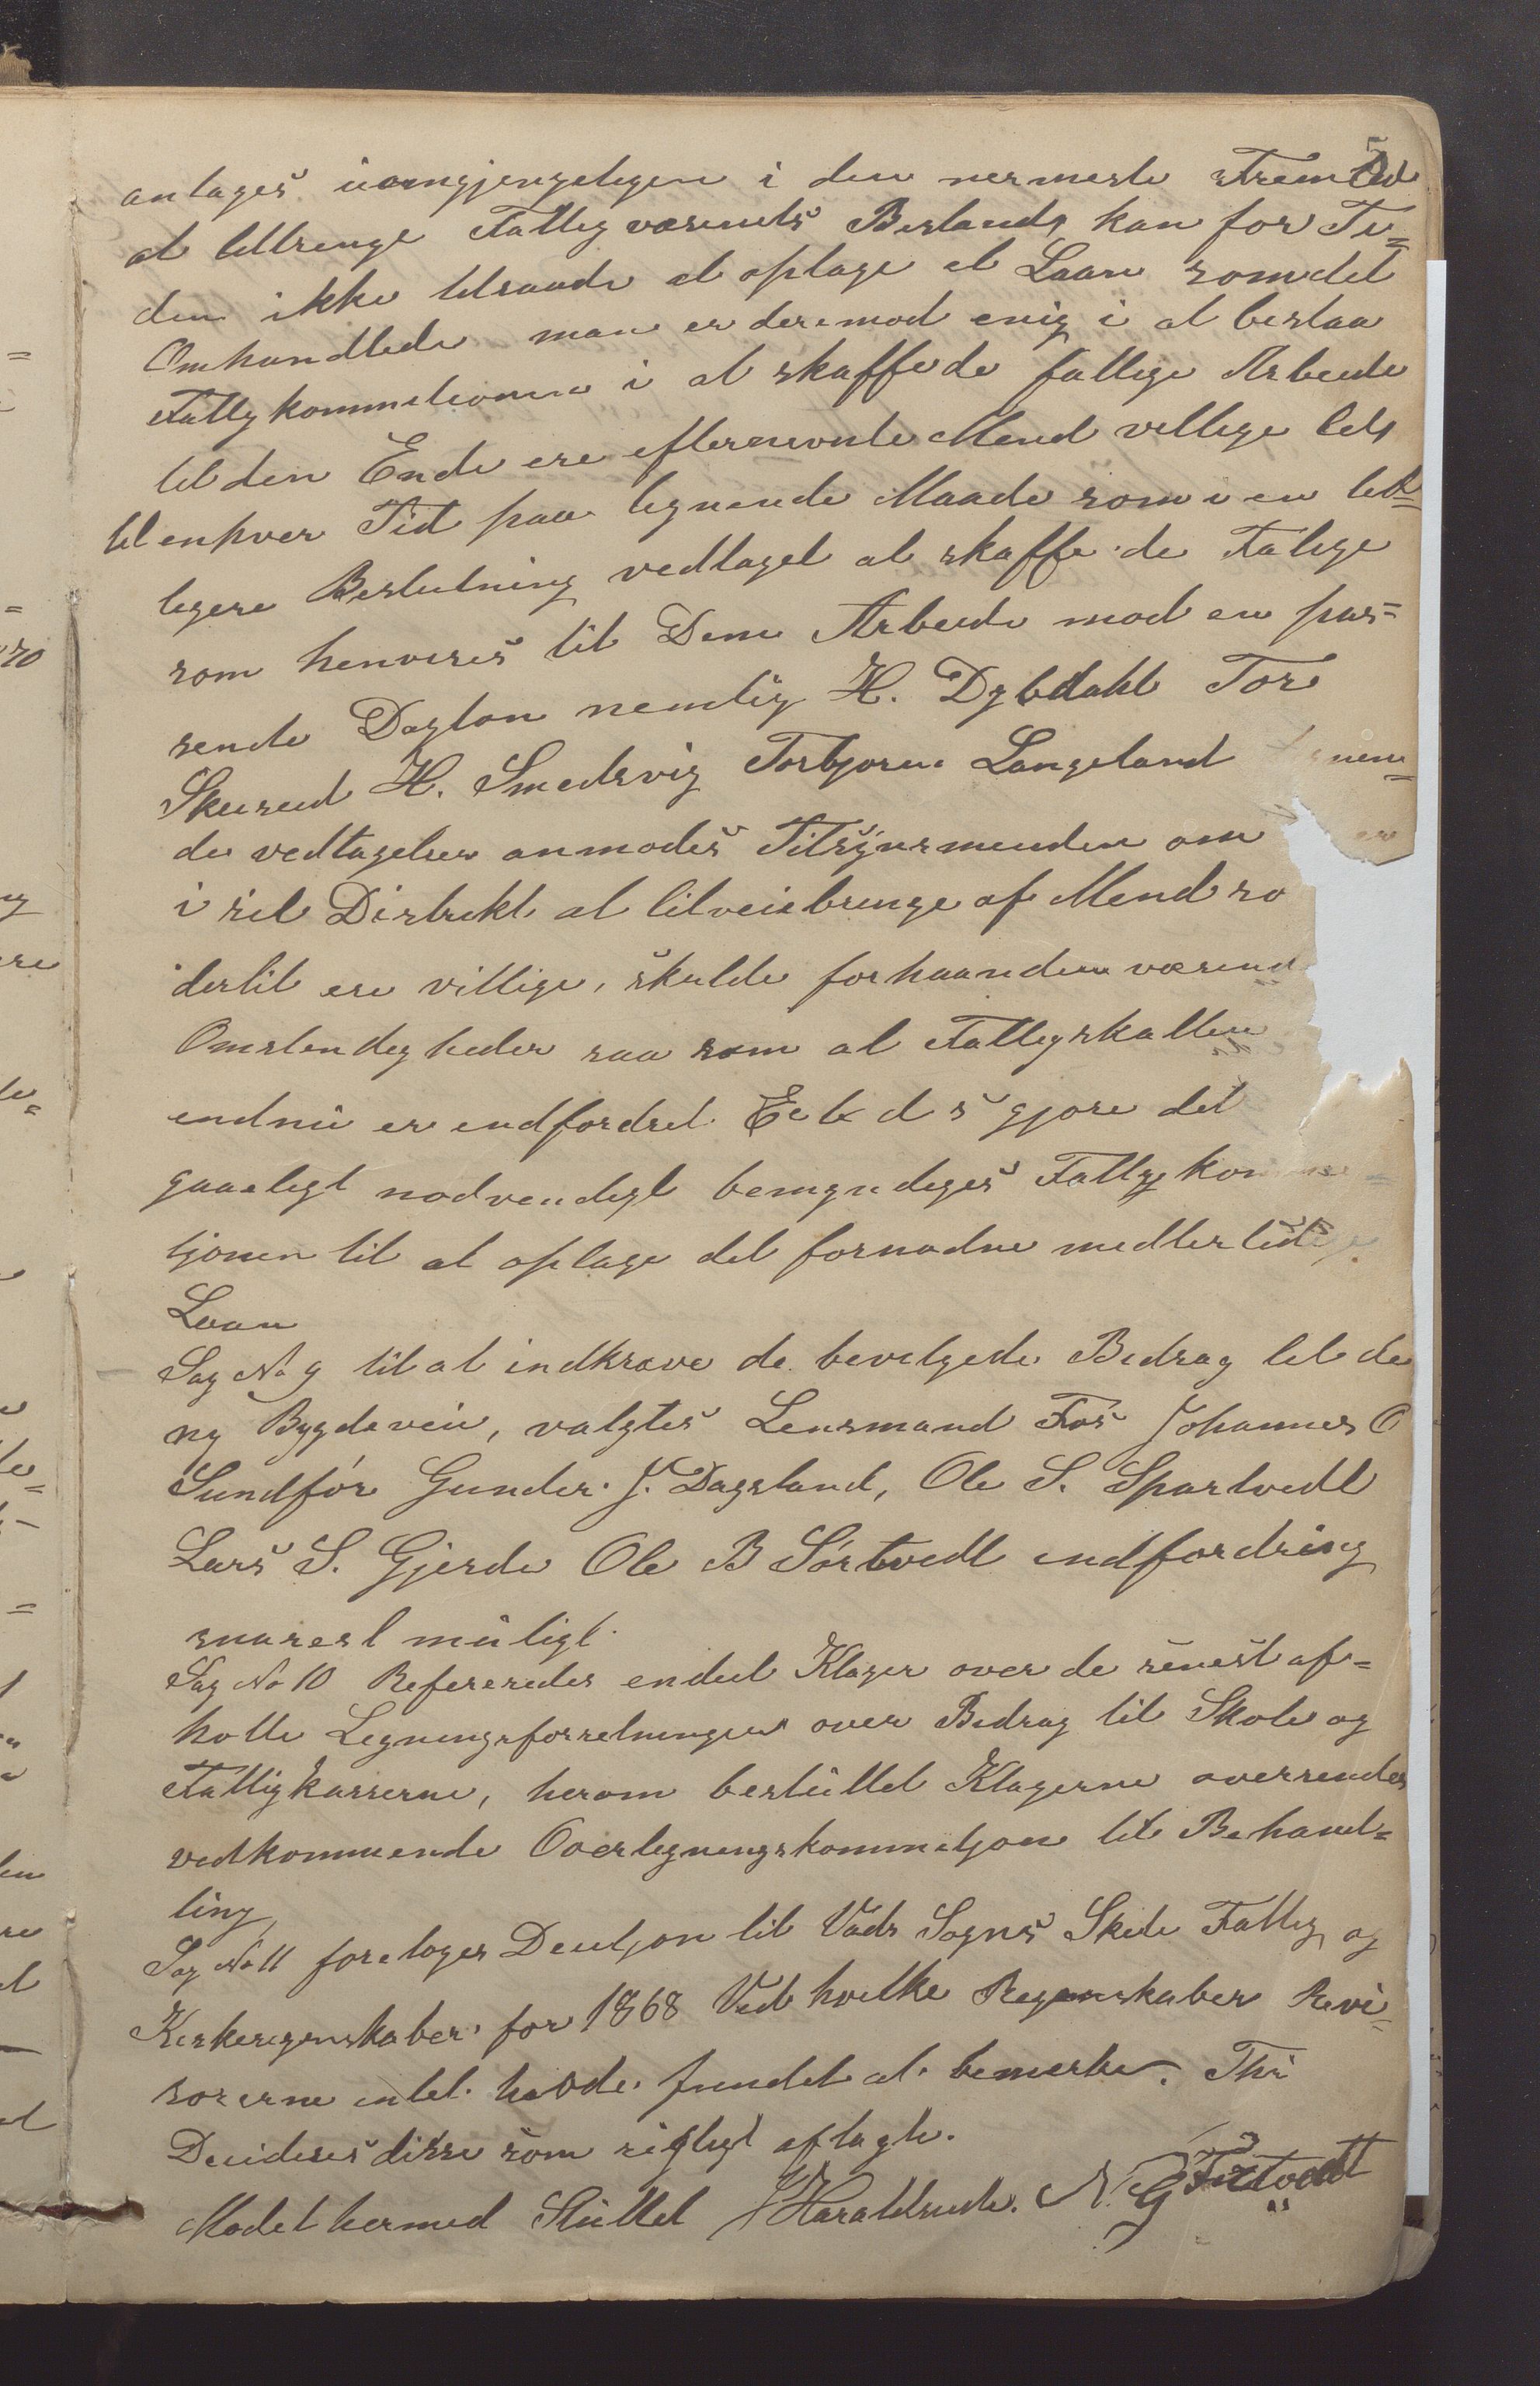 5
antages uomgjengeligen i den nermeste Fremtid
at tiltrenge Fattigvæsenets Bistand, kan for Ti=
den ikke tilraade at optage et Laan som det
Omhandlede man er deremod enig i at bistaa
Fattigkommitionen i at skaffe de fattige Arbeide
til den Ende ere efternevnte Mend villige til,
til enhver Tid paa lignende Maade som i en tid=
ligere Beslutning vedtaget at skaffe de Fatige
som henvises til Dem Arbeide mod en pas=
sende Daglon nemlig H. Dybdahl Tore
Skeiseid H. Smedsvig Torbjoren Langeland nen=
de vedtagelser anmodes Tilsynsmenden om
i sit Distrikt at tilveiebringe af Mend so
dertil ere villige, skulde forhaanden værend
Omstendigheder saa som at Fattigskatten
endnu er endfordret Et d s gjore det
gaaeligt nodvendigt bemyndiges Fattigkom
tjonen til at optage det fornodne medlertidige
Laan
Sag No 9 til at indkræve de bevilgede Bidrag til de
ny Bygdeveie, valgtes Lensmand Fos Johannes O
Sundfor Gunder J. Dagsland, Ole S. Spartvedt
Lars S. Gjerde Ole B Sörtvedt indfordring
snarest muligt.
Sag No 10 Refereredes endeel Klager over de senest af=
holte Legningsforretninger over Bidrag til Skole og
Fattigkasserne, herom besluttet Klagerne oversendes
vedkommende Overlegningskommitjon til Behand=
ling,
Sag No 11 foretoges Decitjon til Vads Sogns Skole Fattig og
Kirkeregnskaber for 1868 Ved hvilke Regenskaber Revi=
sorerne intet havde fundet at bemerke. Thi
Decideres disse som rigtigt aflagte.
Modet hermed Sluttet Haraldseide. N. G Fistvedt